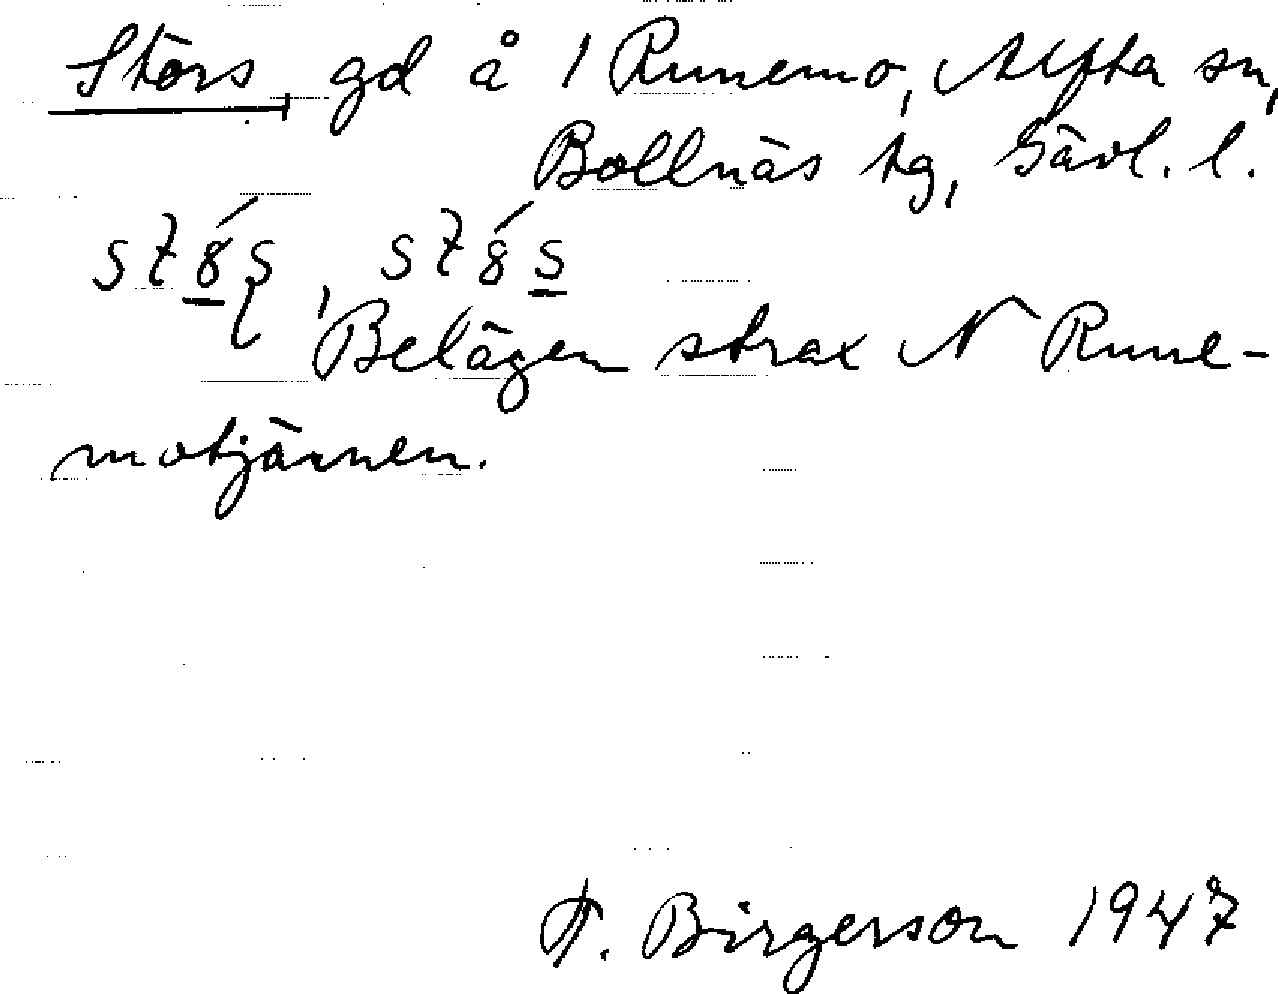 Störs gd å 1 Runemo, Alfta sn,
Bollnäs tg, Gävl. l.
Belägen strax N Rune-
motjärnen.
F. Birgerson 1947